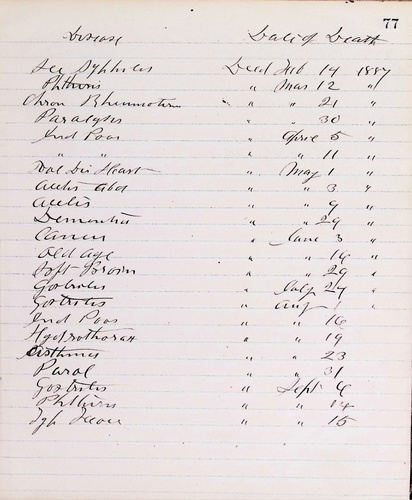 77
Disease Date of Death
Sec Syphiles Died Feb 19 1887
Phthisis " Mar 12 "
Chron Rheumatism " " 21 "
Paralysis " " 30 "
Ind Poor " April 5 "
" " " " 11 "
Val Dis Heart " May 1 "
Acites Abd " " 3 "
Acites " " 9 "
Dementia " " 29 "
Cancer " June 3 "
Old Age " " 16 "
Soft Brain " " 29 "
Gastrites " July 27 "
Gastrites " Aug 1 "
Ind Poor " " 16
Hydrothorax " " 19
Asthma " " 23
Paral " " 31
Gastrites " Sept 6
Phthisis " " 14
Typh Fever " " 15